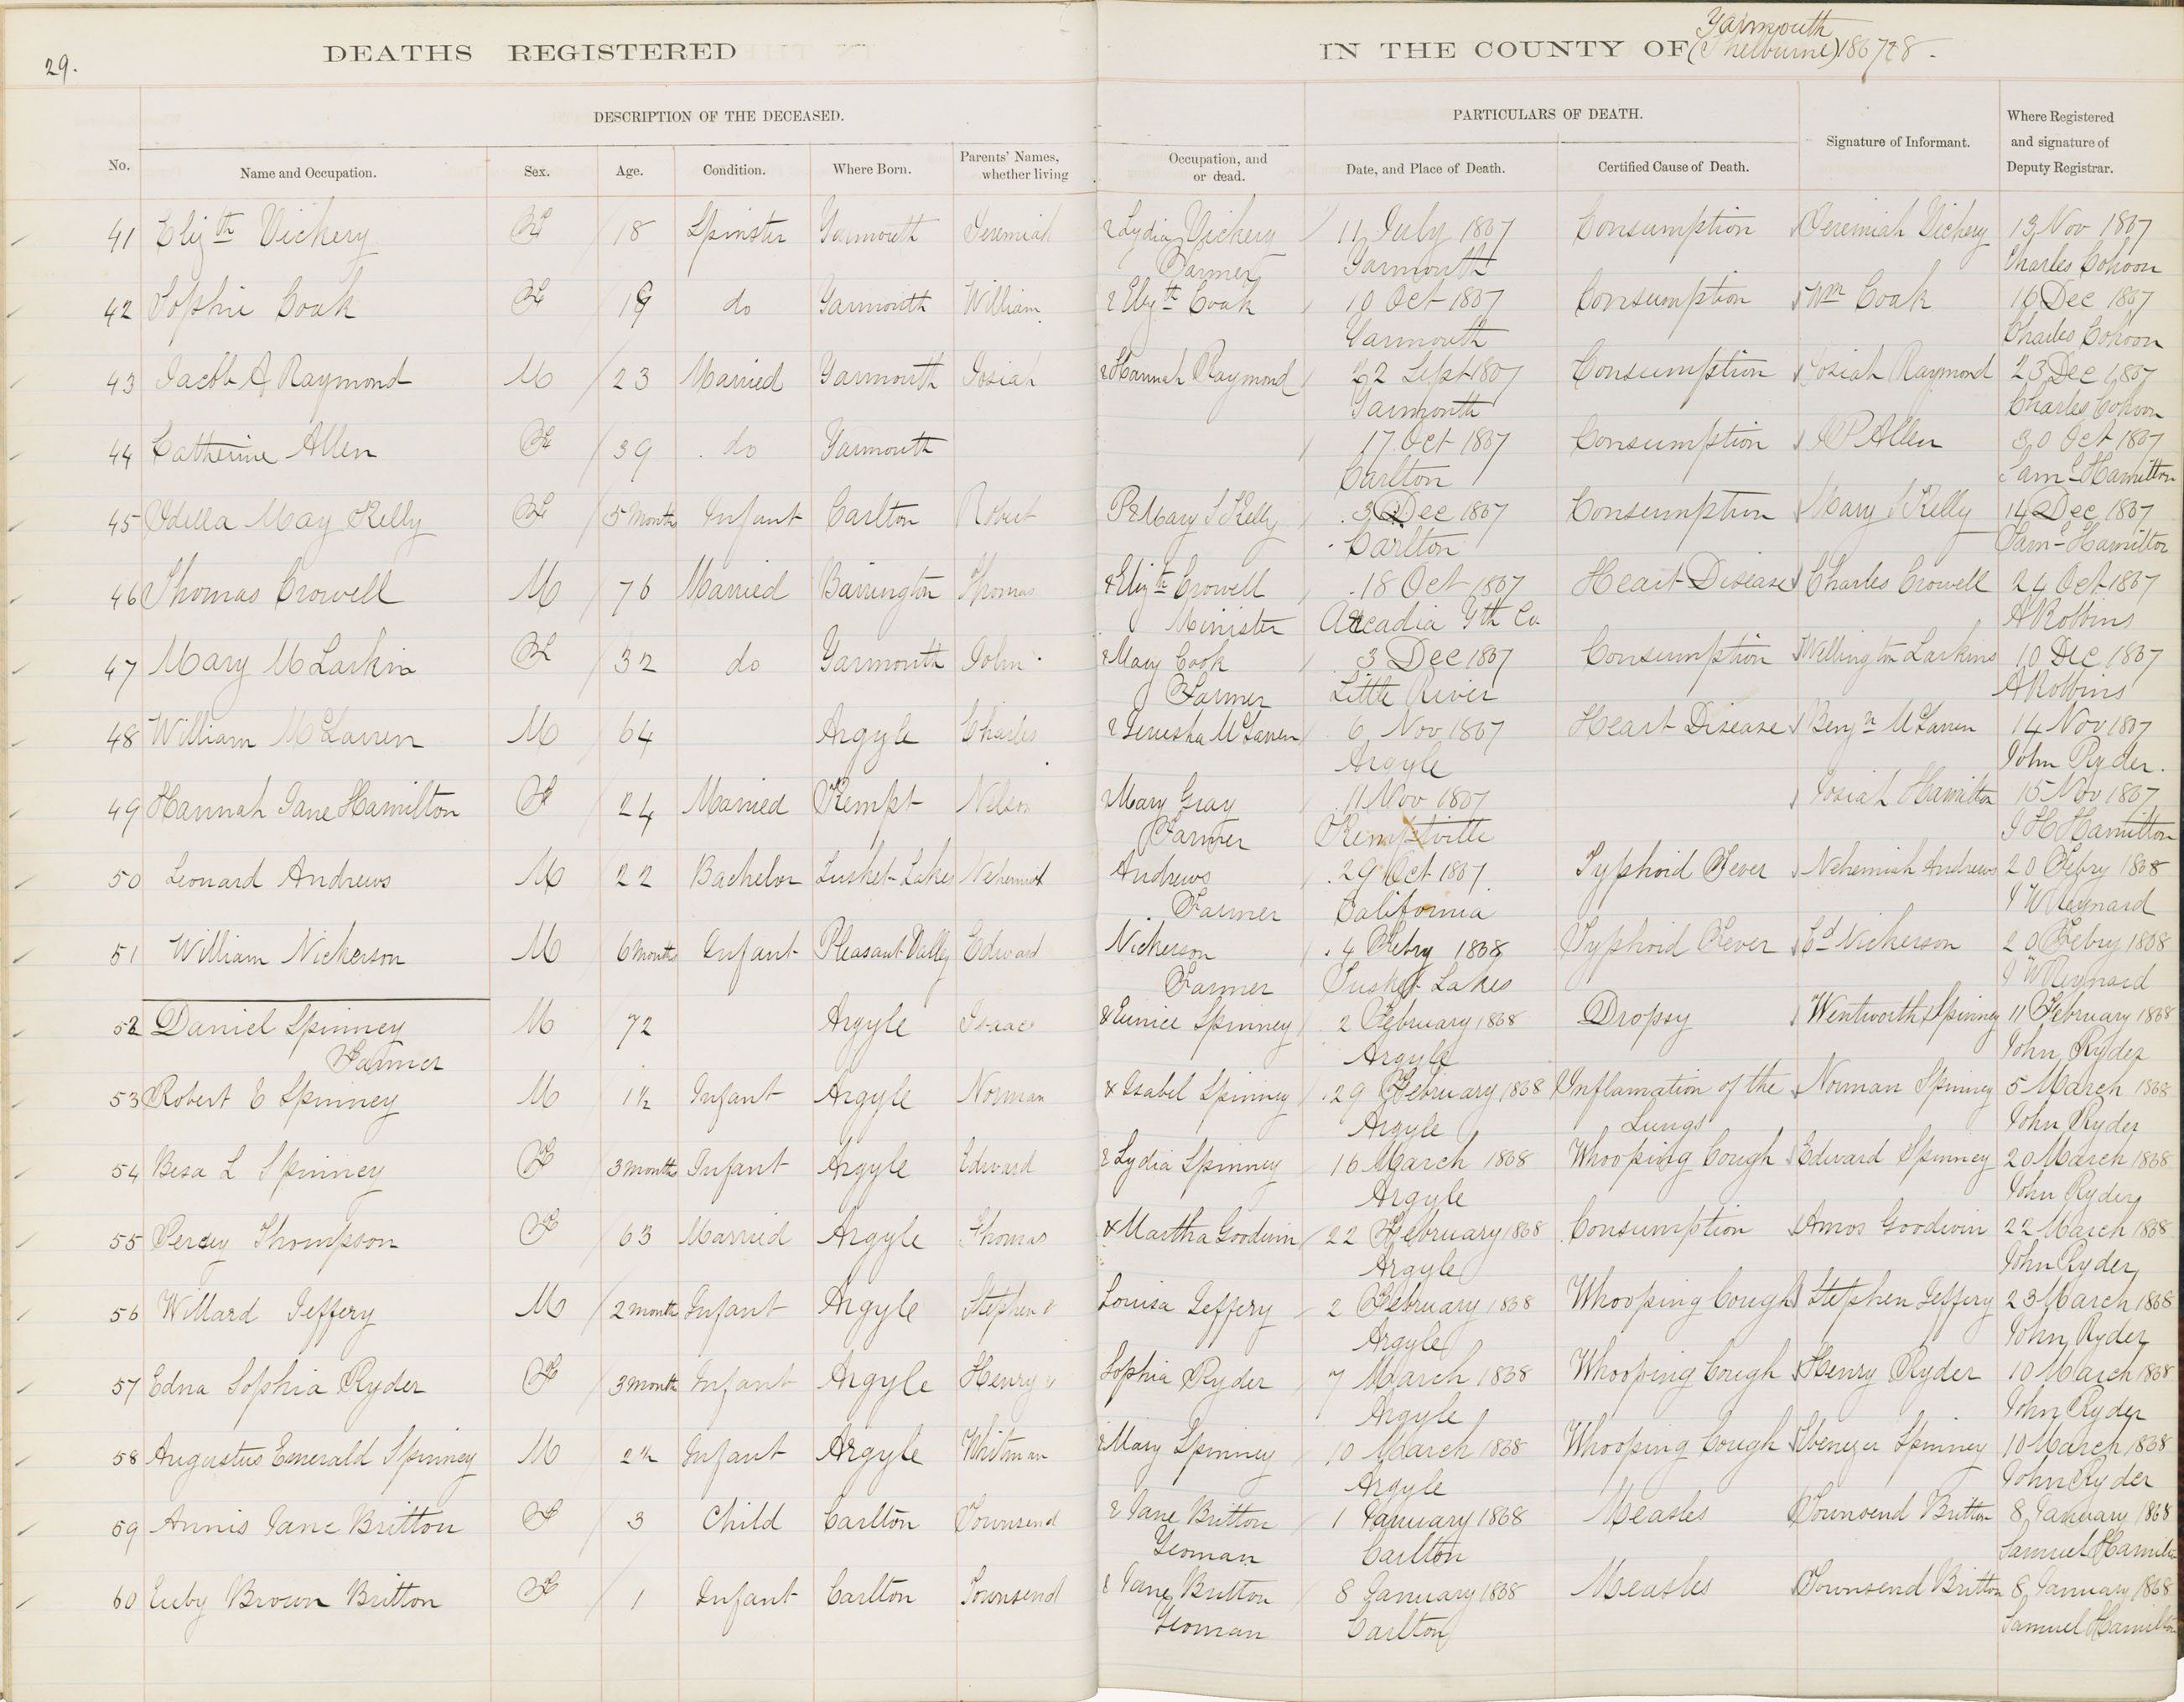 29.
DEATHS REGISTERED IN THE COUNTY OF (Shelburne) Yarmouth 1867&8.
DESCRIPTION OF THE DECEASED. PARTICULARS OF DEATH.
No. Name and Occupation. Sex. Age. Condition. Where Born. Parents' Names, whether living Occupation, and or dead. Date, and Place of Death. Certified Cause of Death. Signature of Informant. Where Registered and signature of Deputy Registrar.
41 Elizth Vickery F 18 Spinster Yarmouth Jeremiah & Lydia Vickery 11 July 1867 Consumption Jeremiah Vickery 13 Nov 1867
Farmer Yarmouth Charles Cohoon
42 Sophie Cook F 19 do Yarmouth William & Elizth Cook 10 Oct 1867 Consumption Wm Cook 16 Dec 1867
Yarmouth Charles Cohoon
43 Jacob A Raymond M 23 Married Yarmouth Josiah & Hannah Raymond 22 Sept 1867 Consumption Josiah Raymond 23 Dec 1867
Yarmouth Charles Cohoon
44 Catherine Allen F 39 do Yarmouth 17 Oct 1867 Consumption Allen 30 Oct 1867
Carlton Saml Hamilton
45 Idella May Kelly F 5 Months Infant Carlton Robert P & Mary S Kelly 3 Dec 1867 Consumption Mary S Kelly 14 Dec 1867
Carlton Saml Hamilton
46 Thomas Crowell M 76 Married Barrington Thomas & Elizth Crowell 18 Oct 1867 Heart Disease Charles Crowell 24 Oct 1867
Minister Arcadia Yth Co. A Robbins
47 Mary M Larkin F 32 do Yarmouth John & Mary Cook 3 Dec 1867 Consumption Wellington Larkins 10 Dec 1867
Farmer Little River A Robbins
48 William McLarren M 64 Argyle Charles & Jerusha McLarren 6 Nov 1867 Heart Disease Benjn McLarren 14 Nov 1867
Argyle John Ryder.
49 Hannah Jane Hamilton F 24 Married Kempt Nelson & Mary Gray 11 Nov 1867 Josiah Hamilton 15 Nov 1867
Farmer Kemptville Hamilton
50 Leonard Andrews M 22 Bachelor Tusket Lakes Nehemiah Andrews 29 Oct 1867 Typhoid Fever Nehemiah Andrews 20 Febry 1868
Farmer California
51 William Nickerson M 6 Months Infant Pleasant Vally Edward Nickerson 4 Febry 1868 Typhoid Fever Ed Nickerson 20 Febry 1868
Farmer Tusket Lakes
52 Daniel Spinney M 72 Argyle Isaac & Eunice Spinney 2 February 1868 Dropsy Wentworth Spinney 11 February 1868
Farmer Argyle John Ryder
53 Robert E Spinney M 1½ Infant Argyle Norman & Isabel Spinney 29 February 1868 Inflamation of the Norman Spinney 5 March 1868
Argyle Lungs John Ryder
54 Besa L Spinney F 3 months Infant Argyle Edward & Lydia Spinney 16 March 1868 Whooping Cough Edward Spinney 20 March 1868
Argyle John Ryder
55 Percy Thompson F 63 Married Argyle Thomas & Martha Goodwin 22 February 1868 Consumption Amos Goodwin 22 March 1868
Argyle John Ryder
56 Willard Jeffery M 2 month Infant Argyle Stephen & Louisa Jeffery 2 February 1868 Whooping Cough Stephen Jeffery 23 March 1868
Argyle John Ryder
57 Edna Sophia Ryder F 3 month Infant Argyle Henry & Sophia Ryder 7 March 1868 Whooping Cough Henry Ryder 10 March 1868
Argyle John Ryder
58 Augustus Emerald Spinney M 2½ Infant Argyle Whitman & Mary Spinney 10 March 1868 Whooping Cough Ebenezer Spinney 10 March 1868
Argyle John Ryder
59 Annis Jane Britton F 3 Child Carlton Townsend & Jane Britton 1 January 1868 Measles Townsend Britton 8 January 1868
Yeoman Carlton Samuel Hamilton
60 Euby Brown Britton F 1 Infant Carlton Townsend & Jane Britton 8 January 1868 Measles Townsend Britton 8 January 1868
Yeoman Carlton Samuel Hamilton